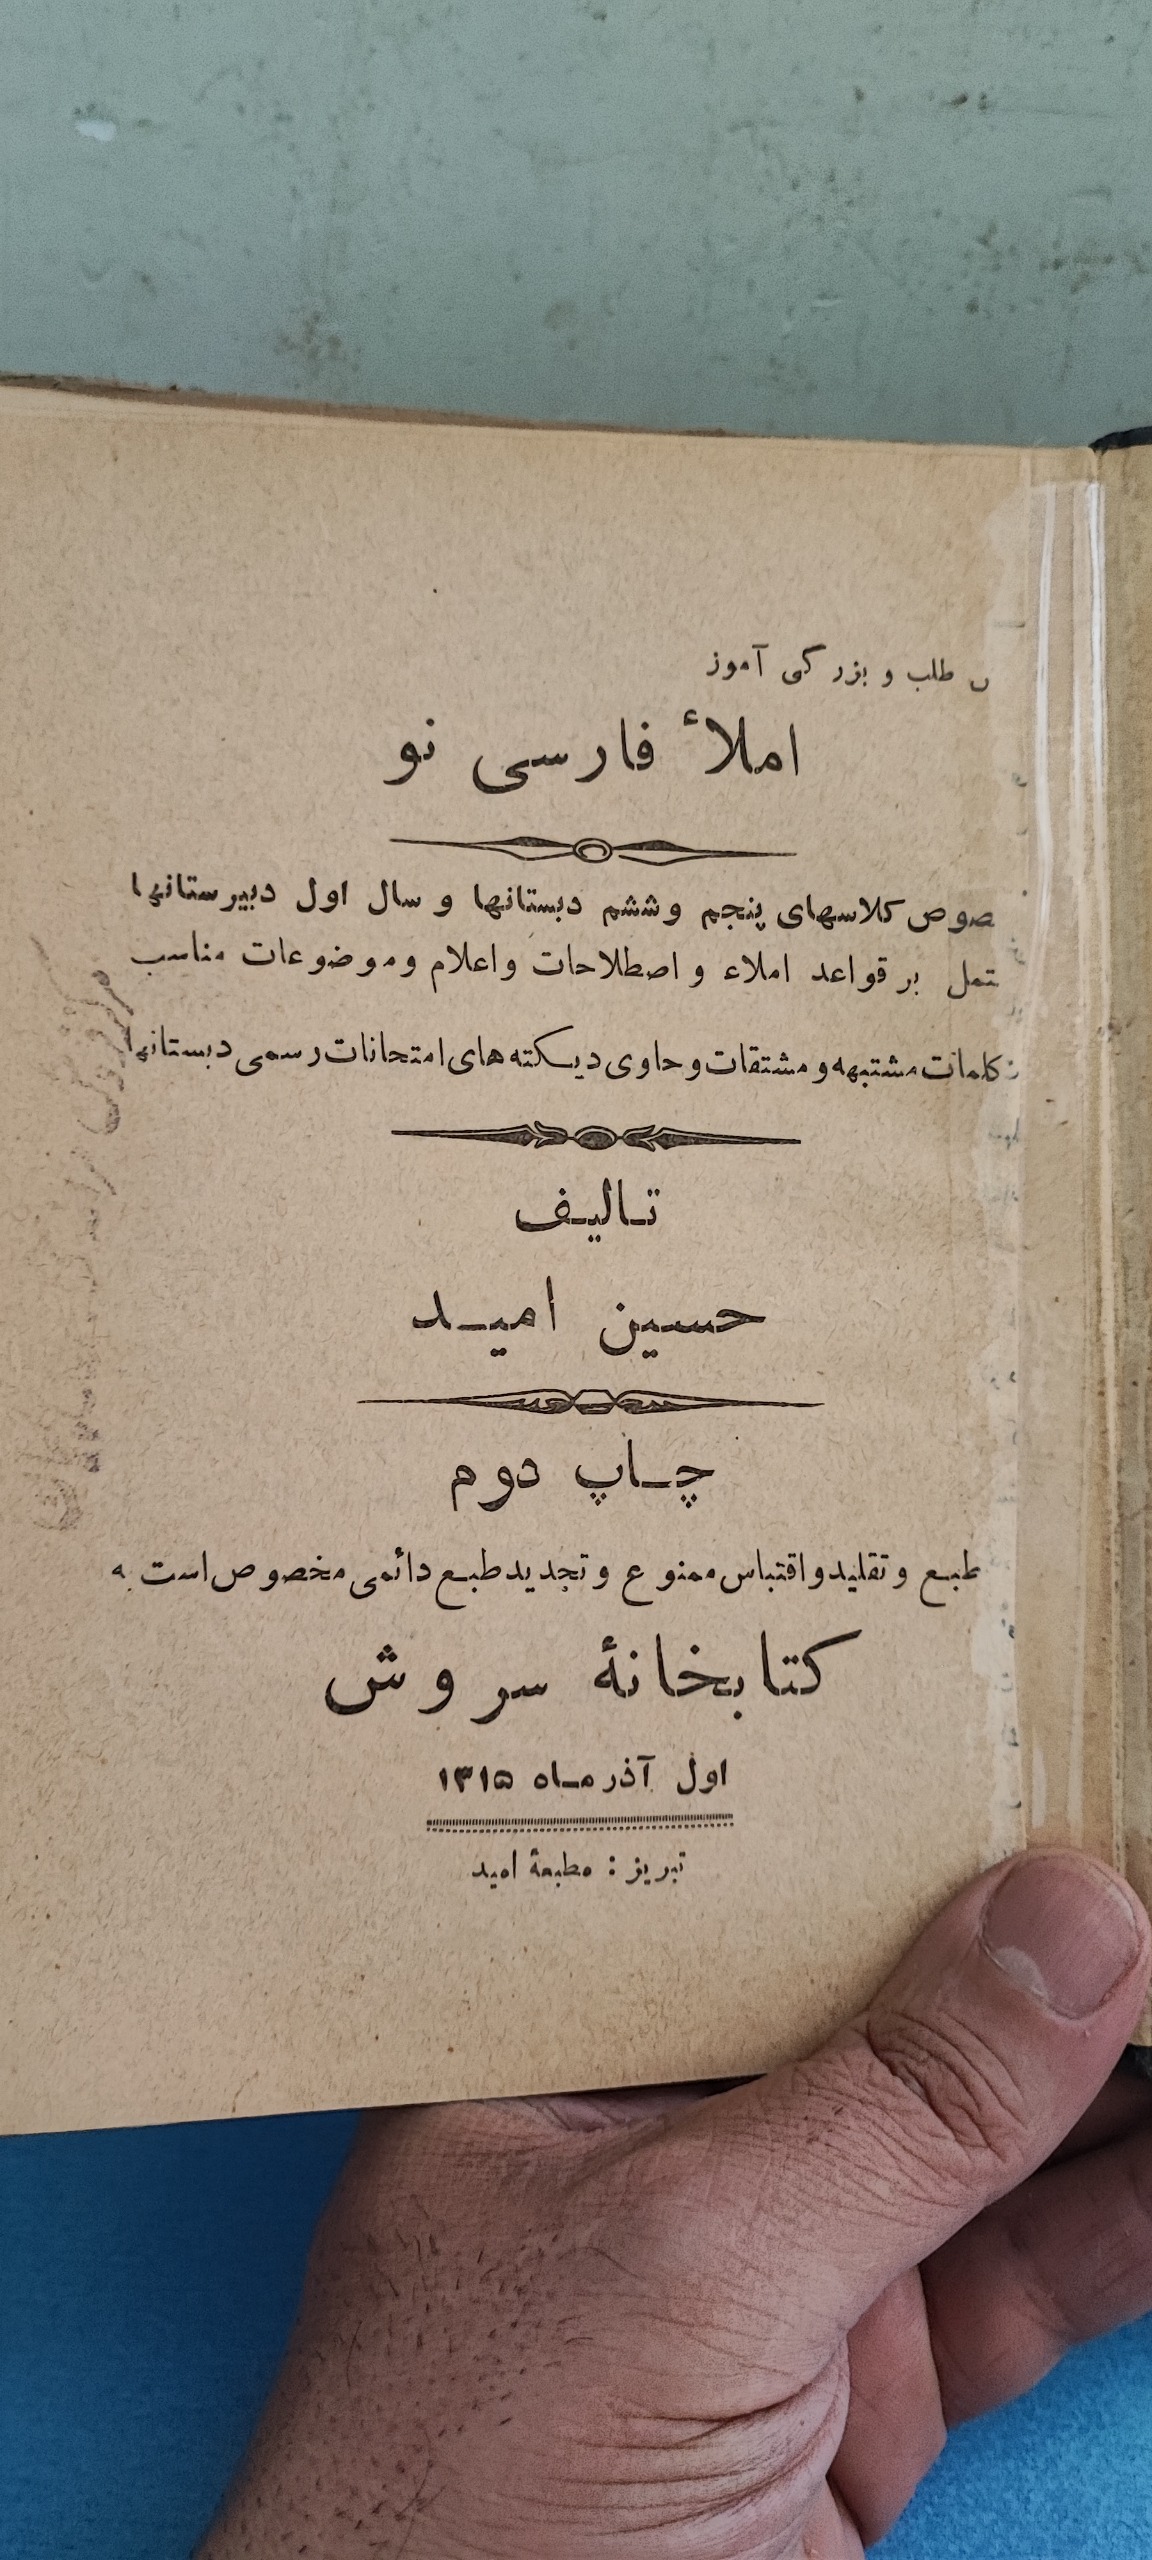 طلب و بزرگی آموز
املاٴ فارسی نو
صوص کلاسهای پنجم و ششم دبستانها و سال اول دبیرستانها
تمل بر قواعد املاء و اصطلاحات و اعلام و موضوعات مناسب
کلمات مشتبهه و مشتقات و حاوی دیکته‌های امتحانات رسمی دبستانها
تالیف
حسین امید
چاپ دوم
طبع و تقلید و اقتباس ممنوع و تجدید طبع دائمی مخصوص است به
کتابخانهٔ سروش
اول آذر ماه ۱۳۱۵
تبریز : مطبعهٔ امید